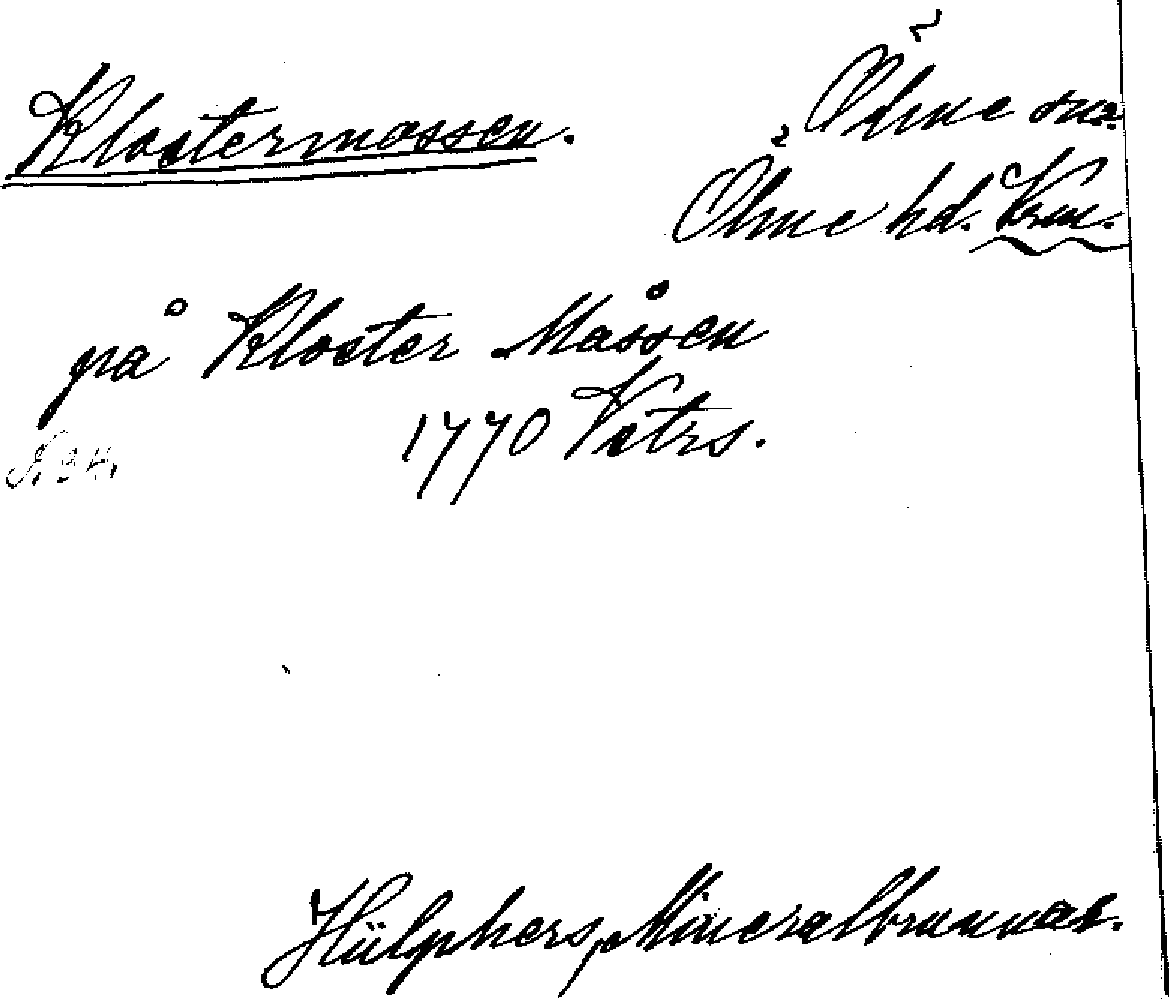 Klostermossen.
Ölme sn.
Ölme hd. Vrm.
på Kloster Måssen
1770 Vitrs.
N. 34.
Hülphers, Mineralbrunnar.